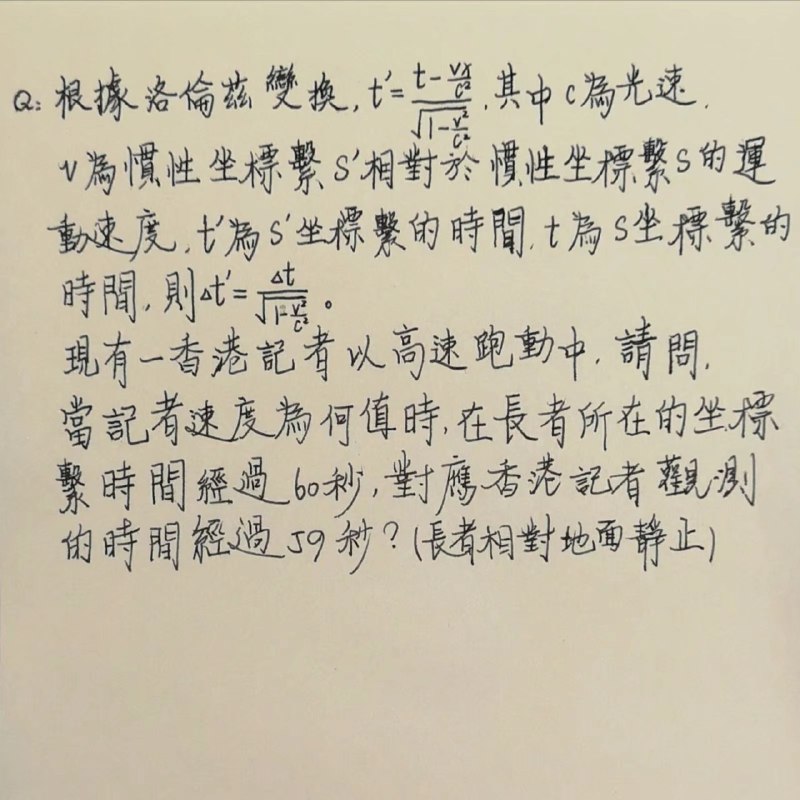 Q: 根據洛倫茲變換, t'=\frac{t-\frac{vx}{c²}}{\sqrt{1-\frac{v²}{c²}}}, 其中c為光速,
v為慣性坐標繫S'相對於慣性坐標繫S的運
動速度, t'為S'坐標繫的時間, t為S坐標繫的
時間, 則Δt'=\frac{Δt}{\sqrt{1-\frac{v²}{c²}}}。
現有一香港記者以高速跑動中, 請問,
當記者速度為何值時, 在長者所在的坐標
繫時間經過60秒, 對應香港記者觀測
的時間經過59秒? (長者相對地面靜止)